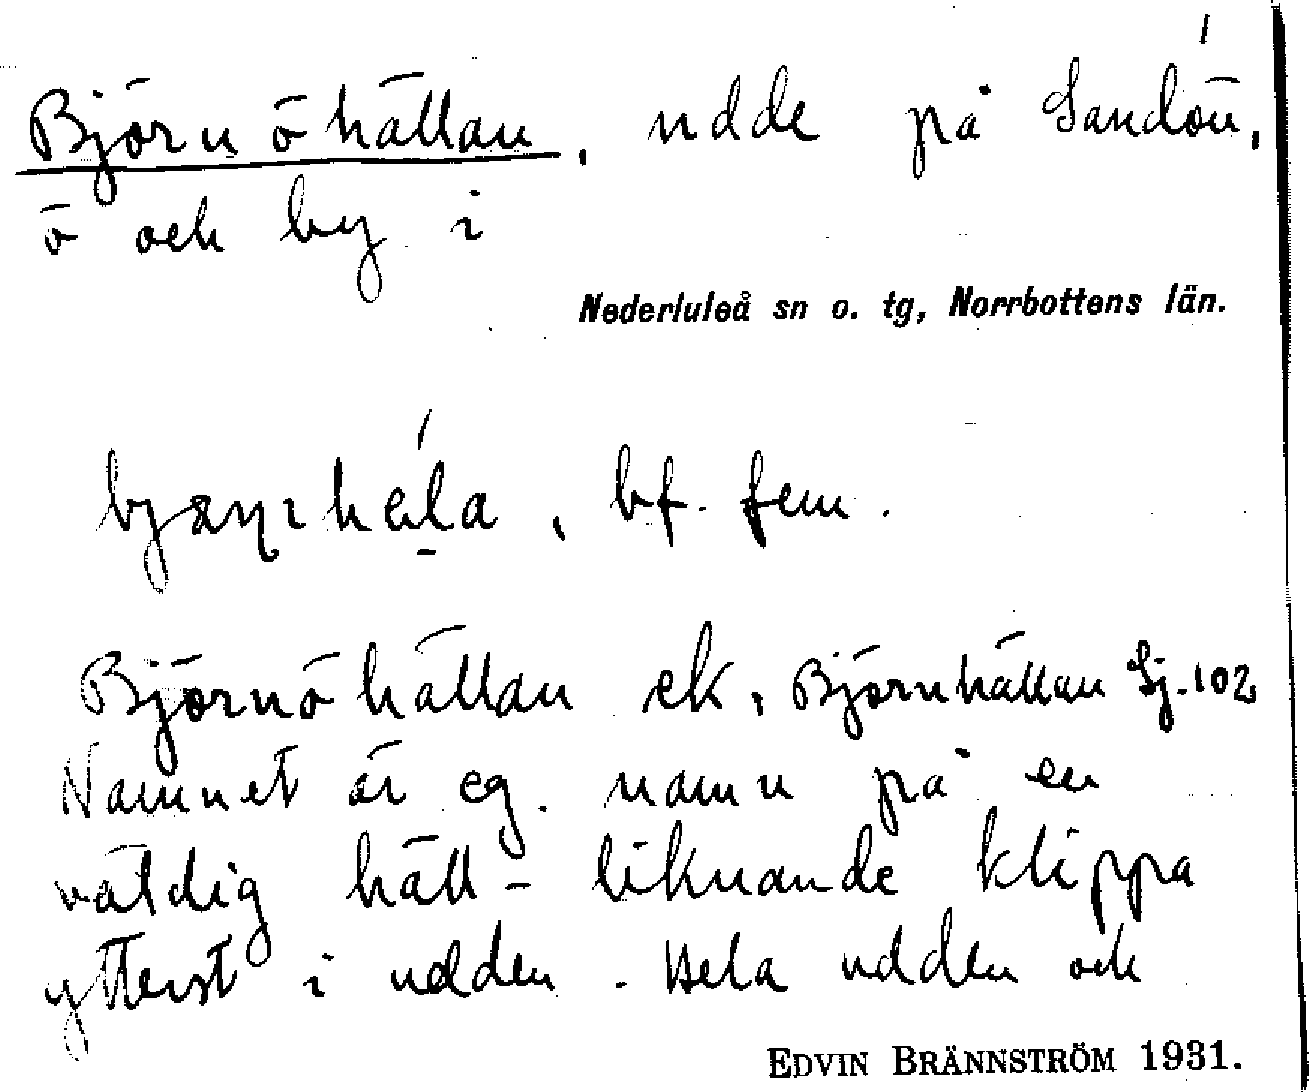 Björnöhällan, udde på Sandön,
ö och by i
Nederluleå sn o. tg, Norrbottens län.
bf. fem.
Björnöhällan ek, Björnhällan Sj. 102
Namnet är eg. namn på en
väldig häll-liknande klippa
ytterst i udden. Hela udden och
EDVIN BRÄNNSTRÖM 1931.